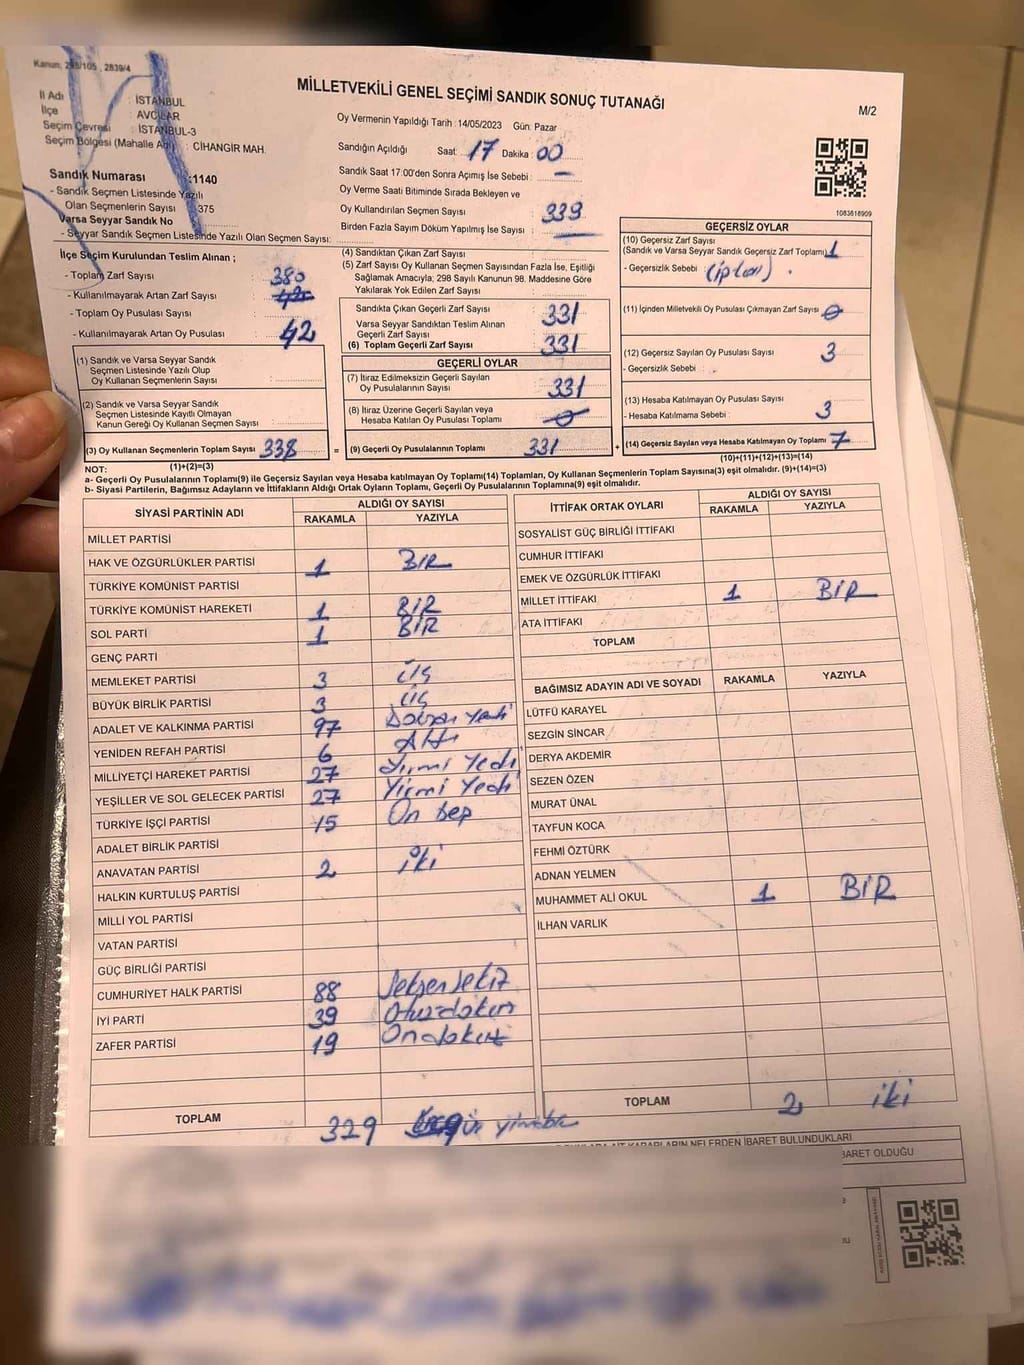 Kanun, 298/105 , 2839/4
MİLLETVEKİLİ GENEL SEÇİMİ SANDIK SONUÇ TUTANAĞI
M/2
İl Adı : İSTANBUL
İlçe : AVCILAR
Seçim Çevresi : İSTANBUL-3
Seçim Bölgesi (Mahalle Adı) : CİHANGİR MAH.
Sandık Numarası :1140
- Sandık Seçmen Listesinde Yazılı
Olan Seçmenlerin Sayısı :375
Varsa Seyyar Sandık No
- Seyyar Sandık Seçmen Listesinde Yazılı Olan Seçmen Sayısı:
Oy Vermenin Yapıldığı Tarih : 14/05/2023 Gün: Pazar
Sandığın Açıldığı Saat: 17 Dakika : 00
Sandık Saat 17:00'den Sonra Açımış İse Sebebi : —
Oy Verme Saati Bitiminde Sırada Bekleyen ve
Oy Kullandırılan Seçmen Sayısı 339
Birden Fazla Sayım Döküm Yapılmış İse Sayısı : —
1083618909
İlçe Seçim Kurulundan Teslim Alınan ;
- Toplam Zarf Sayısı : 380
- Kullanılmayarak Artan Zarf Sayısı :
- Toplam Oy Pusulası Sayısı :
- Kullanılmayarak Artan Oy Pusulası : 42
(1) Sandık ve Varsa Seyyar Sandık
Seçmen Listesinde Yazılı Olup
Oy Kullanan Seçmenlerin Sayısı :
(2) Sandık ve Varsa Seyyar Sandık
Seçmen Listesinde Kayıtlı Olmayan
Kanun Gereği Oy Kullanan Seçmen Sayısı :
(3) Oy Kullanan Seçmenlerin Toplam Sayısı 338 =
(1)+(2)=(3)
(4) Sandıktan Çıkan Zarf Sayısı :
(5) Zarf Sayısı Oy Kullanan Seçmen Sayısından Fazla İse, Eşitliği
Sağlamak Amacıyla; 298 Sayılı Kanunun 98. Maddesine Göre
Yakılarak Yok Edilen Zarf Sayısı :
Sandıkta Çıkan Geçerli Zarf Sayısı : 331
Varsa Seyyar Sandıktan Teslim Alınan
Geçerli Zarf Sayısı
(6) Toplam Geçerli Zarf Sayısı : 331
GEÇERLİ OYLAR
(7) İtiraz Edilmeksizin Geçerli Sayılan
Oy Pusulalarının Sayısı : 331
(8) İtiraz Üzerine Geçerli Sayılan veya
Hesaba Katılan Oy Pusulası Toplamı : 0
(9) Geçerli Oy Pusulalarının Toplamı : 331 +
GEÇERSİZ OYLAR
(10) Geçersiz Zarf Sayısı
(Sandık ve Varsa Seyyar Sandık Geçersiz Zarf Toplamı) 1
- Geçersizlik Sebebi (iptal) .
(11) İçinden Milletvekili Oy Pusulası Çıkmayan Zarf Sayısı 0
(12) Geçersiz Sayılan Oy Pusulası Sayısı 3
- Geçersizlik Sebebi :
(13) Hesaba Katılmayan Oy Pusulası Sayısı
- Hesaba Katılmama Sebebi : 3
(14) Geçersiz Sayılan veya Hesaba Katılmayan Oy Toplamı 7
(10)+(11)+(12)+(13)=(14)
NOT:
a- Geçerli Oy Pusulalarının Toplamı(9) ile Geçersiz Sayılan veya Hesaba katılmayan Oy Toplamı(14) Toplamları, Oy Kullanan Seçmenlerin Toplam Sayısına(3) eşit olmalıdır. (9)+(14)=(3)
b- Siyasi Partilerin, Bağımsız Adayların ve İttifakların Aldığı Ortak Oyların Toplamı, Geçerli Oy Pusulalarının Toplamına(9) eşit olmalıdır.
SİYASİ PARTİNİN ADI ALDIĞI OY SAYISI
RAKAMLA YAZIYLA
MİLLET PARTİSİ
HAK VE ÖZGÜRLÜKLER PARTİSİ 1 BİR
TÜRKİYE KOMÜNİST PARTİSİ
TÜRKİYE KOMÜNİST HAREKETİ 1 BİR
SOL PARTİ 1 BİR
GENÇ PARTİ
MEMLEKET PARTİSİ 3 üç
BÜYÜK BİRLİK PARTİSİ 3 üç
ADALET VE KALKINMA PARTİSİ 97 Doksan yedi
YENİDEN REFAH PARTİSİ 6 Altı
MİLLİYETÇİ HAREKET PARTİSİ 27 Yirmi Yedi
YEŞİLLER VE SOL GELECEK PARTİSİ 27 Yirmi Yedi
TÜRKİYE İŞÇİ PARTİSİ 15 On beş
ADALET BİRLİK PARTİSİ
ANAVATAN PARTİSİ 2 iki
HALKIN KURTULUŞ PARTİSİ
MİLLİ YOL PARTİSİ
VATAN PARTİSİ
GÜÇ BİRLİĞİ PARTİSİ
CUMHURİYET HALK PARTİSİ 88 Seksen sekiz
İYİ PARTİ 39 Otuzdokuz
ZAFER PARTİSİ 19 Ondokuz
TOPLAM 329
İTTİFAK ORTAK OYLARI ALDIĞI OY SAYISI
RAKAMLA YAZIYLA
SOSYALİST GÜÇ BİRLİĞİ İTTİFAKI
CUMHUR İTTİFAKI
EMEK VE ÖZGÜRLÜK İTTİFAKI
MİLLET İTTİFAKI 1 BİR
ATA İTTİFAKI
TOPLAM
BAĞIMSIZ ADAYIN ADI VE SOYADI RAKAMLA YAZIYLA
LÜTFÜ KARAYEL
SEZGİN SİNCAR
DERYA AKDEMİR
SEZEN ÖZEN
MURAT ÜNAL
TAYFUN KOCA
FEHMİ ÖZTÜRK
ADNAN YELMEN
MUHAMMET ALİ OKUL 1 BİR
İLHAN VARLIK
TOPLAM 2 iki
KARARLARIN NELERDEN İBARET BULUNDUKLARI
BARET OLDUĞU